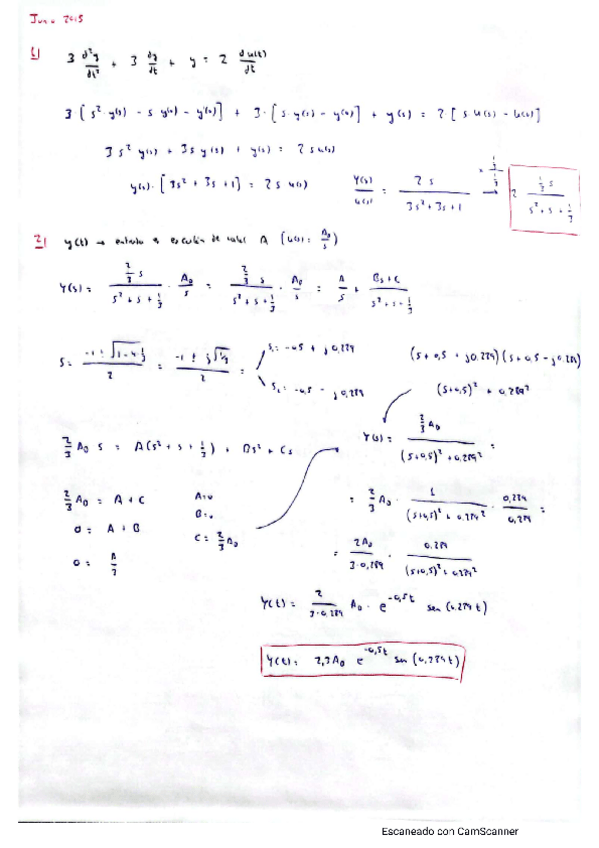 Junio 2015
1)
3 d²y/dt² + 3 dy/dt + y = 2 du(t)/dt
3 [s² y(s) - s y(0) - y'(0)] + 3·[s·y(s) - y(0)] + y(s) = 2·[s u(s) - u(0)]
3s² y(s) + 3s y(s) + y(s) = 2 s u(s)
y(s)·[3s² + 3s + 1] = 2s u(s)
Y(s)/u(s) = 2s / (3s² + 3s + 1)
2 · (1/3 s) / (s² + s + 1/3)
2) y(t) → entrada es escalón de valor A (u(s) = A₀/s)
Y(s) = (2/3 s)/(s² + s + 1/3) · A₀/s = (2/3 s)/(s² + s + 1/3) · A₀/s = A/s + (Bs + C)/(s² + s + 1/3)
s = (-1 ± √(1-4·1/3))/2 = (-1 ± j√(1/3))/2 =
s₁ = -0,5 + j0,289
s₂ = -0,5 - j0,289
(s + 0,5 + j0,289)(s + 0,5 - j0,289)
(s+0,5)² + 0,289²
2/3 A₀ s = A(s² + s + 1/3) + Bs² + Cs
2/3 A₀ = A + C
0 = A + B
0 = A/3
A=0
B=0
C = 2/3 A₀
Y(s) = (2/3 A₀)/((s+0,5)² + 0,289²) =
= 2/3 A₀ · 1/((s+0,5)² + 0,289²) · 0,289/0,289 =
= 2A₀/(3·0,289) · 0,289/((s+0,5)² + 0,289²)
Y(t) = 2/(3·0,289) A₀ · e^(-0,5t) sen(0,289t)
Y(t) = 2,3A₀ e^(-0,5t) sen(0,289t)
Escaneado con CamScanner